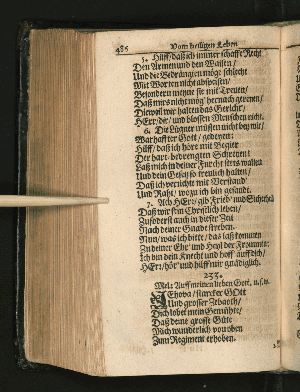 486 Vom heiligen Leben
5. Hilff/ daß ich immer schaffe Recht
Den Armen und den Waisen/
Und die Bedrängten möge schlecht
Mit Worten nicht abspeisen/
Besondern meyne sie mit Treuen/
Daß mirs nicht mög' hernach gereuen/
Dieweil wir halten das Gericht/
HErr/ dir/ und blossen Menschen nicht.
6. Die Lügner müssen nicht bey mir/
Warhaffter Gott/
Hilff/ daß ich höre mit Begier
Der hart-bedrengten
Laß mich in deiner Furcht stets
Und dein Gesetz so treulich halten/
Daß ich verrichte mit Verstand
Und Raht/ wozu ich bin gesandt.
7. Ach HErr/ gib Fried' und Sicherheit
Daß wir fein Christlich leben/
Zuförderst auch in dieser Zeit
Nach deiner Gnade streben.
Nun/ was ich bitte/ das laß kommen
Zu deiner Ehr' und Heyl der Frommen:
Ich bin dein Knecht und hoff' auff dich/
HErr/ hör' und hilff mir gnädiglich.
233.
Mel: Auff meinen lieben Gott, u.s.w.
Jehova/ starcker GOtt
Und grosser Zebaoth/
Dich lobet mein Gemühte/
Daß deine grosse Güte
Mich wunderlich von oben
Zum Regiment erhoben.